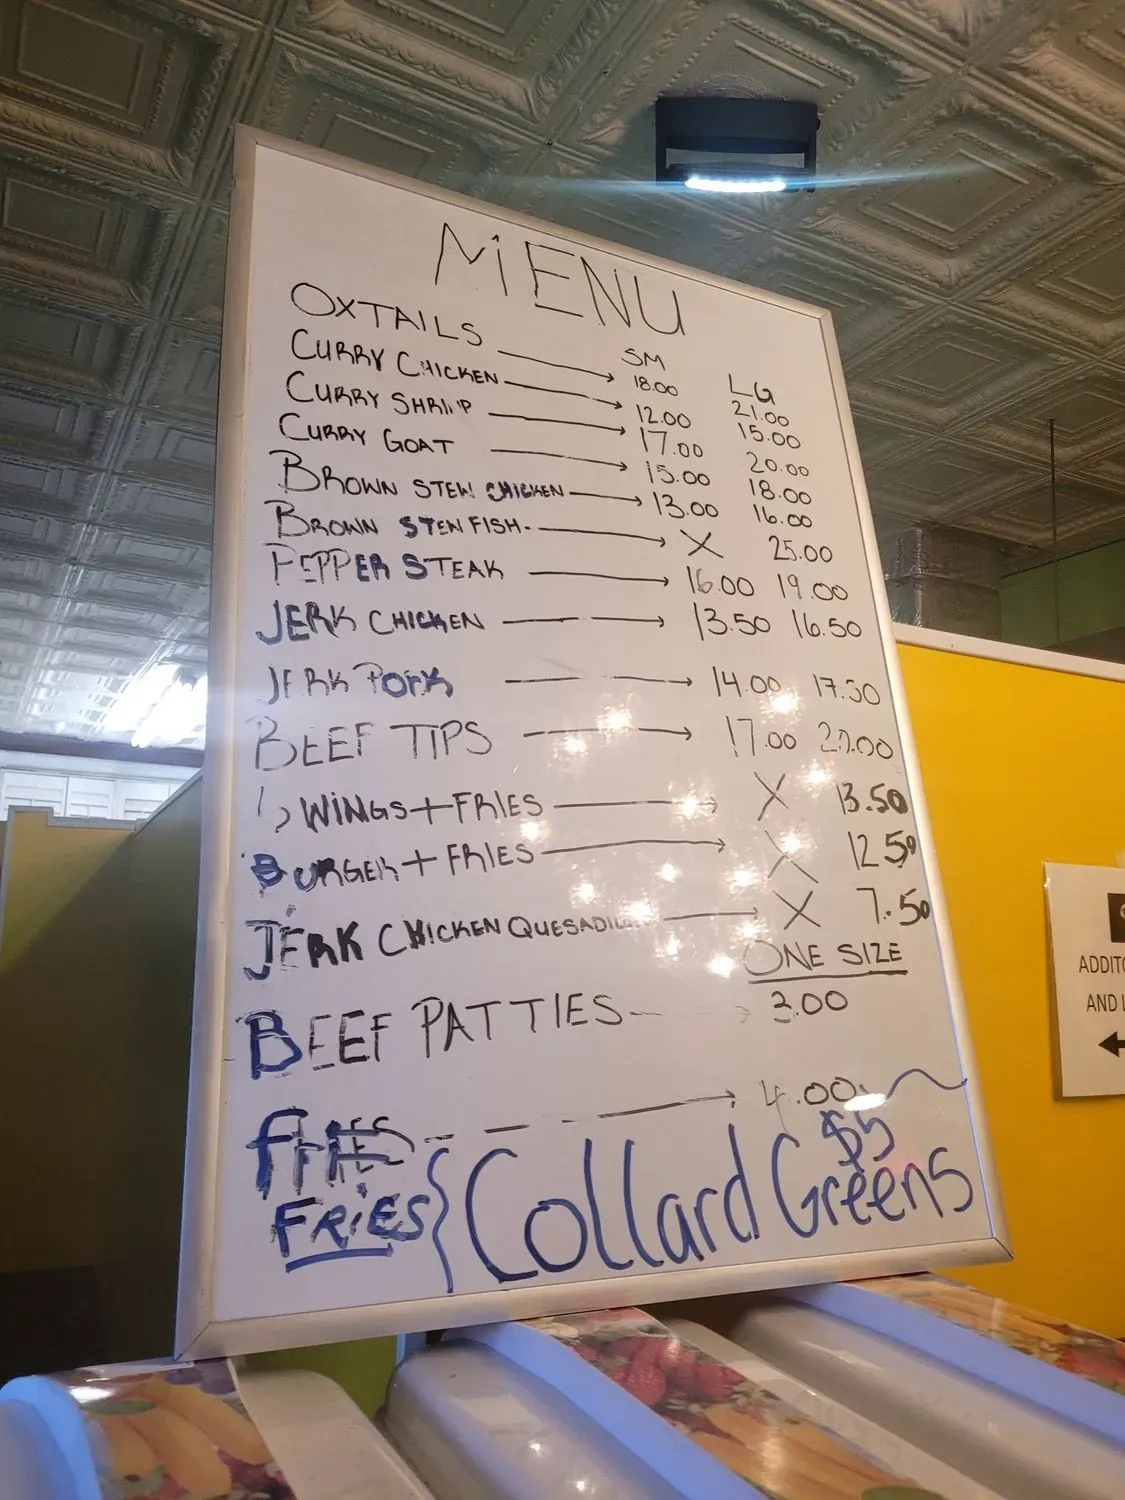 MENU
SM LG
OXTAILS 18.00 21.00
CURRY CHICKEN 12.00 15.00
CURRY SHRIMP 17.00 20.00
CURRY GOAT 15.00 18.00
BROWN STEW CHICKEN 13.00 16.00
BROWN STEW FISH X 25.00
PEPPER STEAK 16.00 19.00
JERK CHICKEN 13.50 16.50
JERK PORK 14.00 17.50
BEEF TIPS 17.00
WINGS + FRIES X 13.50
BURGER + FRIES X 12.50
JERK CHICKEN X 7.50
ONE SIZE
BEEF PATTIES 3.00
FRIES 4.00
$5
FRIES { Collard Greens
AND